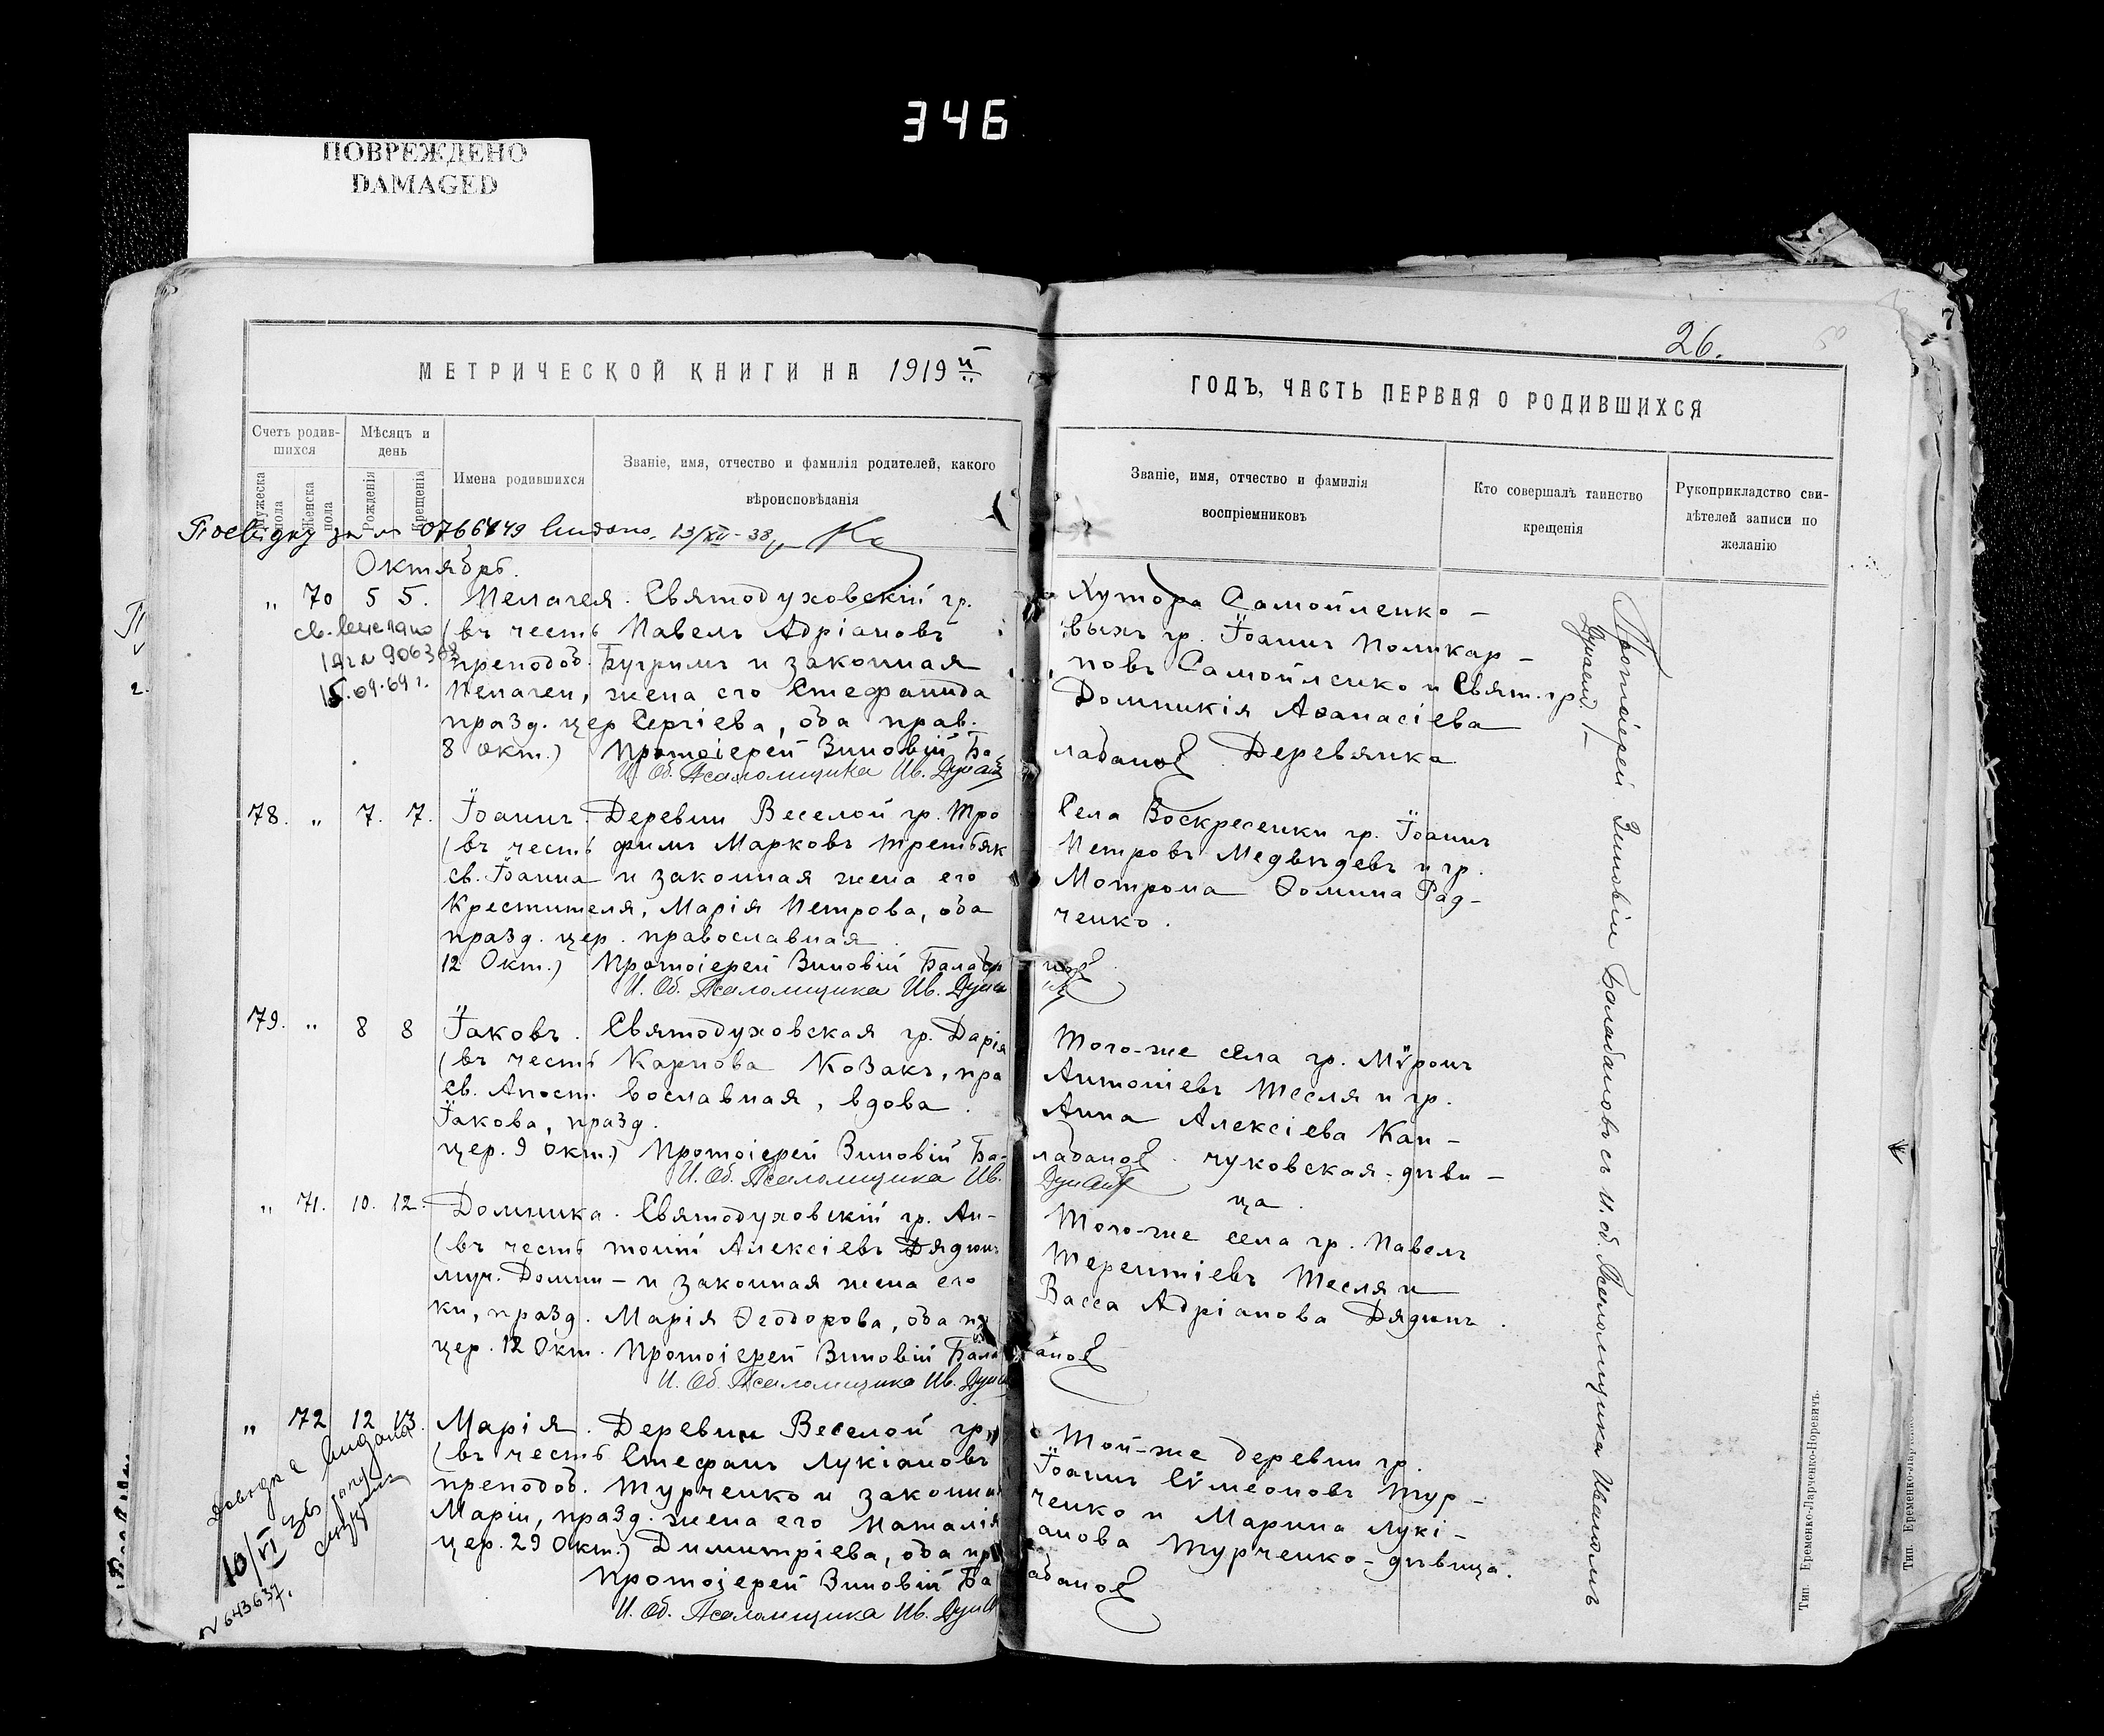 346
ПОВРЕЖДЕНО
DAMAGED
МЕТРИЧЕСКОЙ КНИГИ НА 1919 й
Счетъ родив-
шихся
Мѣсяцъ и
день
Мужеска
пола
Женска
пола
Рожденія
Крещенія
Имена родившихся
Званіе, имя, отчество и фамилія родителей, какого
вѣроисповѣданія
0766449 13/XII-38
Октябрь.
„ 70 5 5. Пелагея. Святодуховскій гр.
(въ честь Павелъ Адріановъ
преподоб. Бугримъ и законная
Пелагеи, жена его Стефанида
празд. цер Сергіева, оба прав.
8 Окт.) Протоіерей Зиновій Ба
И. Об. Псаломщика Ив. Дунай
св.
906363
15.09.69 г.
78. „ 7. 7. Іоаннъ. Деревни Веселой гр. Тро
(въ честь фимъ Марковъ Третьяк
св. Іоанна и законная жена его
Крестителя, Марія Петрова, оба
празд. цер. православная.
12 Окт.) Протоіерей Зиновій Балаб
И. Об. Псаломщика Ив. Дуна
79. „ 8 8 Іаковъ. Святодуховская гр. Дарія
(въ честь Карпова Козакъ, пра
св. Апост. вославная, вдова.
Іакова, празд.
цер. 9 Окт.) Протоіерей Зиновій Ба-
И. Об. Псаломщика Ив.
„ 71. 10. 12. Домника. Святодуховскій гр. Ан-
(въ честь тоній Алексіевъ Дядюнъ
муч. Домни- и законная жена его
ки, празд. Марія Ѳеодорова, оба пр
цер. 12 Окт. Протоіерей Зиновій Бала
И. Об. Псаломщика Ив. Дуна
„ 72 12 13. Марія. Деревни Веселой гр.
(въ честь Стефанъ Лукіановъ
преподоб. Турченко и законна
Маріи, празд. жена его Наталія
цер. 29 Окт.) Димитріева, оба пр
Протоіерей Зиновій Ба
И. Об. Псаломщика Ив. Дуна
10/VI
N 643637.
26.
ГОДЪ, ЧАСТЬ ПЕРВАЯ О РОДИВШИХСЯ
Званіе, имя, отчество и фамилія
воспріемниковъ
Кто совершалъ таинство
крещенія
Рукоприкладство сви-
дѣтелей записи по
желанію
Хутора Самойленко-
выхъ гр. Іоаннъ Поликар-
повъ Самойленко и Свят. гр
Домникія Аѳанасіева
лабанов. Деревянка
Села Воскресенки гр. Іоаннъ
Петровъ Медвѣдевъ и гр.
Мотрона Ѳомина Рад-
ченко.
Того-же села гр. Мѵронъ
Антоніевъ Тесля и гр.
Анна Алексіева Кан-
лабанов. чуковская-дѣви-
Дунай ца.
Того-же села гр. Павелъ
Терентіевъ Тесля и
Васса Адріанова Дядюнъ.
анов
Той-же деревни гр.
Іоаннъ Сѵмеоновъ Тур-
ченко и Марина Лукі-
анова Турченко-дѣвица.
абанов
Протоіерей Зиновій Балабановъ съ И. об. Псаломщика Иваномъ
Дунаемъ
Тип. Еременко-Ларченко-Норевичъ.
Тип. Еременко-Лар